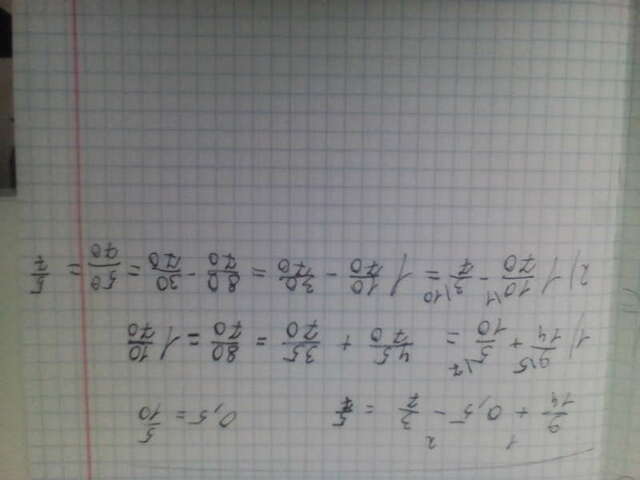 1 2
9/14 + 0,5 - 3/7 = 5/7 0,5 = 5/10
1) 9\5/14 + 5\7/10 = 45/70 + 35/70 = 80/70 = 1 10/70
2) 1 10\1/70 - 3\10/7 = 1 10/70 - 30/70 = 80/70 - 30/70 = 50/70 = 5/7